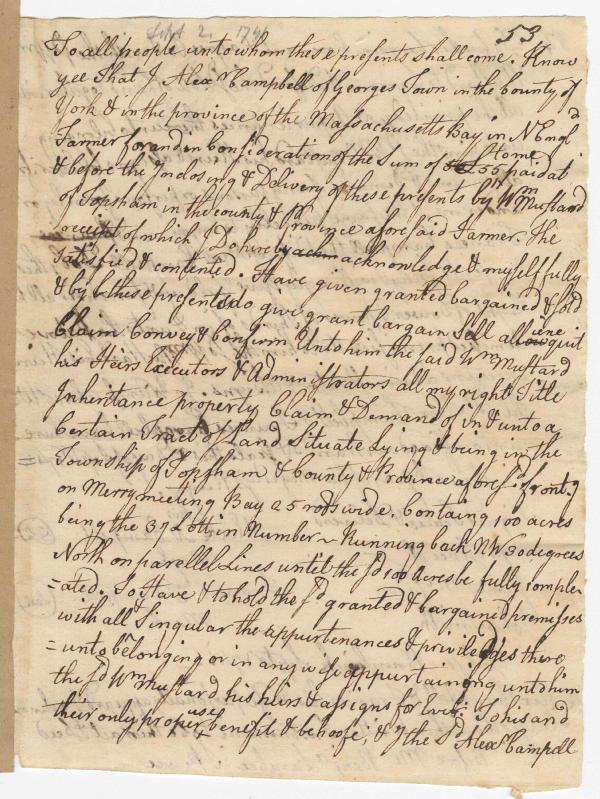 Sept 2, 174
53
To all people unto whom these presents shall come. Know
yee That I Alexr Campbell of Georges Town in the county of
York & in the province of the Massachusetts Bay in N Engld
Farmer for and in Consideration of the Sum of to me £55 paid at
& before the Inclosing & Delivery of these presents by Wm Mustard
of Topsham in the county & Province aforesaid Farmer. The
receipt of which I Do hereby ackn acknowledge & myself fully
Satisfied & contented. Have given granted bargained & sold
& by these presents do give grant bargain Sell aliene quit
Claim Convey & Confirm Unto him the said Wm Mustard
his Heirs Executors & Administrators all my right Title
Inheritance property Claim & Demand of in & unto a
Certain Tract of Land Situate Lying & being in the
= Township of Topsham & County & Province afores:d fronting
on Merrymeeting Bay 25 rods wide. Containg 100 acres
being the 37 Lott in Number ~ Running back NW 30 degrees
North on parellel Lines until the sd 100 Acres be fully comple
=ated. To Have & to hold the sd granted & bargained premisses
with all Singular the appurtenances & priviledges there
=unto belonging or in any wise appurtaining unto him
the sd Wm Mustard his heirs & assigns for Ever; To his and
their only proper use & benefit & behoofe; & I the Sd Alexr Campell